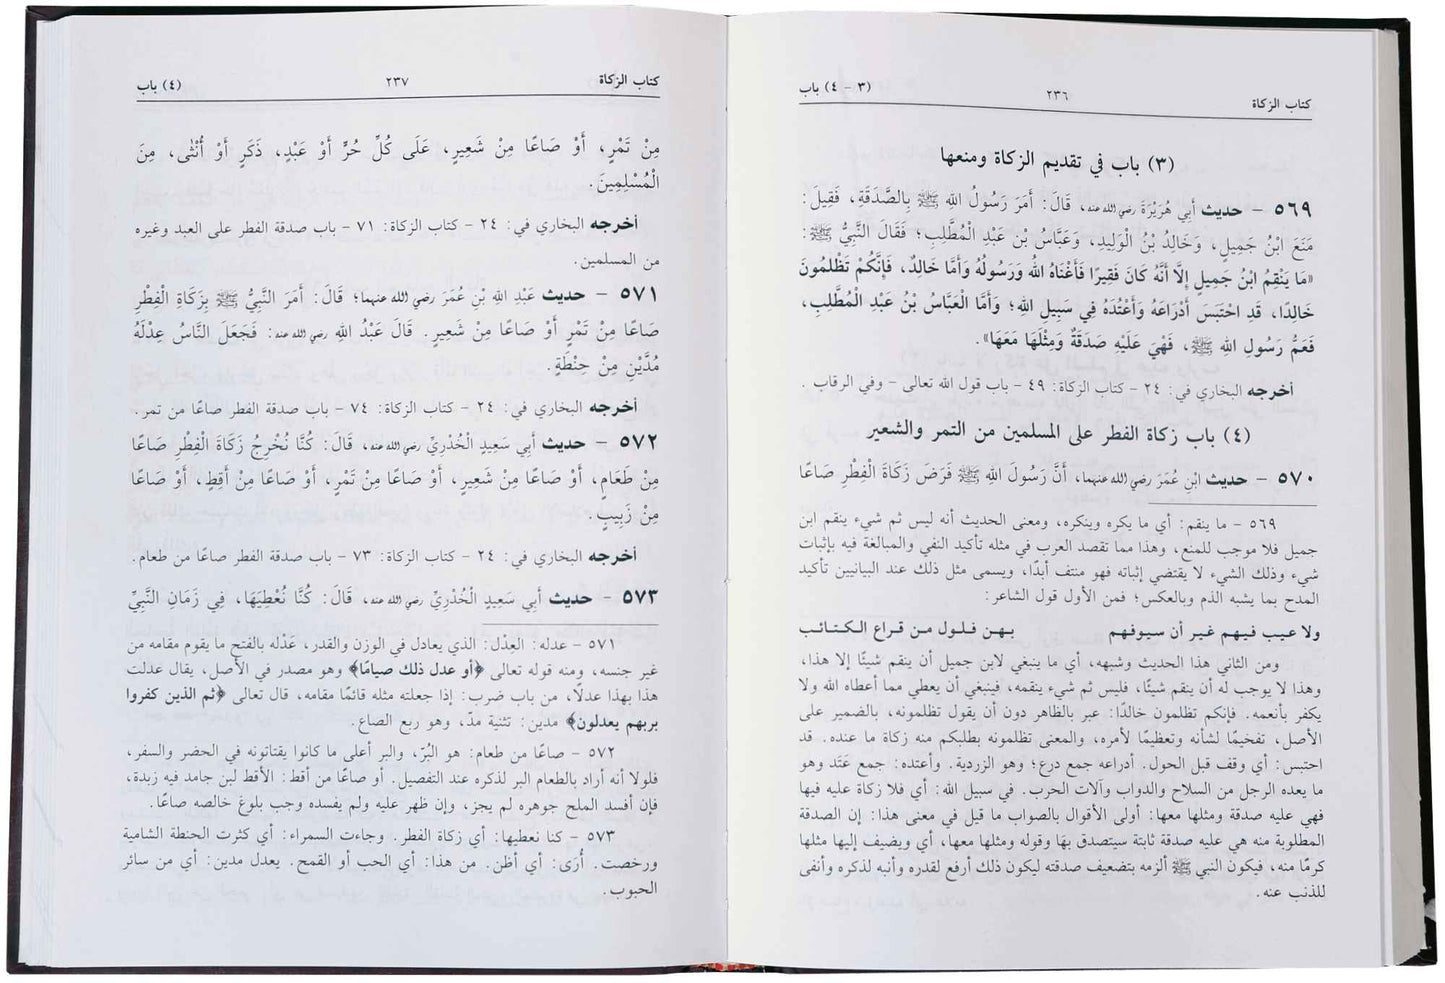 كتاب الزكاة
٢٣٦
(٣ - ٤) باب
(٣) باب في تقديم الزكاة ومنعها
٥٦٩ - حديث أَبِي هُرَيْرَةَ رضي الله عنه، قَالَ: أَمَرَ رَسُولُ اللهِ ﷺ بِالصَّدَقَةِ، فَقِيلَ:
مَنَعَ ابْنُ جَمِيلٍ، وَخَالِدُ بْنُ الْوَلِيدِ، وَعَبَّاسُ بْنُ عَبْدِ الْمُطَّلِبِ؛ فَقَالَ النَّبِيُّ ﷺ:
«مَا يَنْقِمُ ابْنُ جَمِيلٍ إِلَّا أَنَّهُ كَانَ فَقِيرًا فَأَغْنَاهُ اللهُ وَرَسُولُهُ وَأَمَّا خَالِدٌ، فَإِنَّكُمْ تَظْلِمُونَ
خَالِدًا، قَدِ احْتَبَسَ أَدْرَاعَهُ وَأَعْتُدَهُ فِي سَبِيلِ اللهِ؛ وَأَمَّا الْعَبَّاسُ بْنُ عَبْدِ الْمُطَّلِبِ،
فَعَمُّ رَسُولِ اللهِ ﷺ، فَهْيَ عَلَيْهِ صَدَقَةٌ وَمِثْلُهَا مَعَهَا».
أخرجه البخاري في: ٢٤ - كتاب الزكاة: ٤٩ - باب قول الله تعالى - وفي الرقاب .
(٤) باب زكاة الفطر على المسلمين من التمر والشعير
٥٧٠ - حديث ابْنِ عُمَرَ رضي الله عنهما، أَنَّ رَسُولَ اللهِ ﷺ فَرَضَ زَكَاةَ الْفِطْرِ صَاعًا
٥٦٩ - ما ينقم: أي ما يكره وينكره، ومعنى الحديث أنه ليس ثم شيء ينقم ابن
جميل فلا موجب للمنع، وهذا مما تقصد العرب في مثله تأكيد النفي والمبالغة فيه بإثبات
شيء وذلك الشيء لا يقتضي إثباته فهو منتف أبدًا، ويسمى مثل ذلك عند البيانيين تأكيد
المدح بما يشبه الذم وبالعكس؛ فمن الأول قول الشاعر:
ولا عيب فيهم غير أن سيوفهم بهن فلول من قراع الكتائب
ومن الثاني هذا الحديث وشبهه، أي ما ينبغي لابن جميل أن ينقم شيئًا إلا هذا،
وهذا لا يوجب له أن ينقم شيئًا، فليس ثم شيء ينقمه، فينبغي أن يعطي مما أعطاه الله ولا
يكفر بأنعمه. فإنكم تظلمون خالدًا: عبر بالظاهر دون أن يقول تظلمونه، بالضمير على
الأصل، تفخيمًا لشأنه وتعظيمًا لأمره، والمعنى تظلمونه بطلبكم منه زكاة ما عنده. قد
احتبس: أي وقف قبل الحول. أدراعه جمع درع؛ وهو الزردية. وأعتده: جمع عَتَد وهو
ما يعده الرجل من السلاح والدواب وآلات الحرب. في سبيل الله: أي فلا زكاة عليه فيها
فهي عليه صدقة ومثلها معها: أولى الأقوال بالصواب ما قيل في معنى هذا: إن الصدقة
المطلوبة منه هي عليه صدقة ثابتة سيتصدق بها وقوله ومثلها معها، أي ويضيف إليها مثلها
كرمًا منه، فيكون النبي ﷺ ألزمه بتضعيف صدقته ليكون ذلك أرفع لقدره وأنبه لذكره وأنفى
للذنب عنه.
كتاب الزكاة
٢٣٧
(٤) باب
مِنْ تَمْرٍ، أَوْ صَاعًا مِنْ شَعِيرٍ، عَلَى كُلِّ حُرٍّ أَوْ عَبْدٍ، ذَكَرٍ أَوْ أُنْثَى، مِنَ
الْمُسْلِمِينَ.
أخرجه البخاري في: ٢٤ - كتاب الزكاة: ٧١ - باب صدقة الفطر على العبد وغيره
من المسلمين.
٥٧١ - حديث عَبْدِ اللهِ بْنِ عُمَرَ رضي الله عنهما؛ قَالَ: أَمَرَ النَّبِيُّ ﷺ بِزَكَاةِ الْفِطْرِ
صَاعًا مِنْ تَمْرٍ أَوْ صَاعًا مِنْ شَعِيرٍ. قَالَ عَبْدُ اللهِ رضي الله عنه: فَجَعَلَ النَّاسُ عِدْلَهُ
مُدَّيْنِ مِنْ حِنْطَةٍ.
أخرجه البخاري في: ٢٤ - كتاب الزكاة: ٧٤ - باب صدقة الفطر صاعًا من تمر.
٥٧٢ - حديث أَبِي سَعِيدٍ الْخُدْرِيِّ رضي الله عنه، قَالَ: كُنَّا نُخْرِجُ زَكَاةَ الْفِطْرِ صَاعًا
مِنْ طَعَامٍ، أَوْ صَاعًا مِنْ شَعِيرٍ، أَوْ صَاعًا مِنْ تَمْرٍ، أَوْ صَاعًا مِنْ أَقِطٍ، أَوْ صَاعًا
مِنْ زَبِيبٍ.
أخرجه البخاري في: ٢٤ - كتاب الزكاة: ٧٣ - باب صدقة الفطر صاعًا من طعام.
٥٧٣ - حديث أَبِي سَعِيدٍ الْخُدْرِيِّ رضي الله عنه، قَالَ: كُنَّا نُعْطِيَهَا، فِي زَمَانِ النَّبِيِّ
٥٧١ - عدله: العِدْل: الذي يعادل في الوزن والقدر، عَدْله بالفتح ما يقوم مقامه من
غير جنسه، ومنه قوله تعالى ﴿أو عدل ذلك صيامًا﴾ وهو مصدر في الأصل، يقال عدلت
هذا بهذا عدلًا، من باب ضرب: إذا جعلته مثله قائمًا مقامه، قال تعالى ﴿ثم الذين كفروا
بربهم يعدلون﴾ مدين: تثنية مدّ، وهو ربع الصاع.
٥٧٢ - صاعًا من طعام: هو البُرّ، والبر أعلى ما كانوا يقتاتونه في الحضر والسفر،
فلولا أنه أراد بالطعام البر لذكره عند التفصيل. أو صاعًا من أقط: الأقط لبن جامد فيه زبدة،
فإن أفسد الملح جوهره لم يجز، وإن ظهر عليه ولم يفسده وجب بلوغ خالصه صاعًا.
٥٧٣ - كنا نعطيها: أي زكاة الفطر. وجاءت السمراء: أي كثرت الحنطة الشامية
ورخصت. أُرَى: أي أظن. من هذا: أي الحب أو القمح. يعدل مدين: أي من سائر
الحبوب.